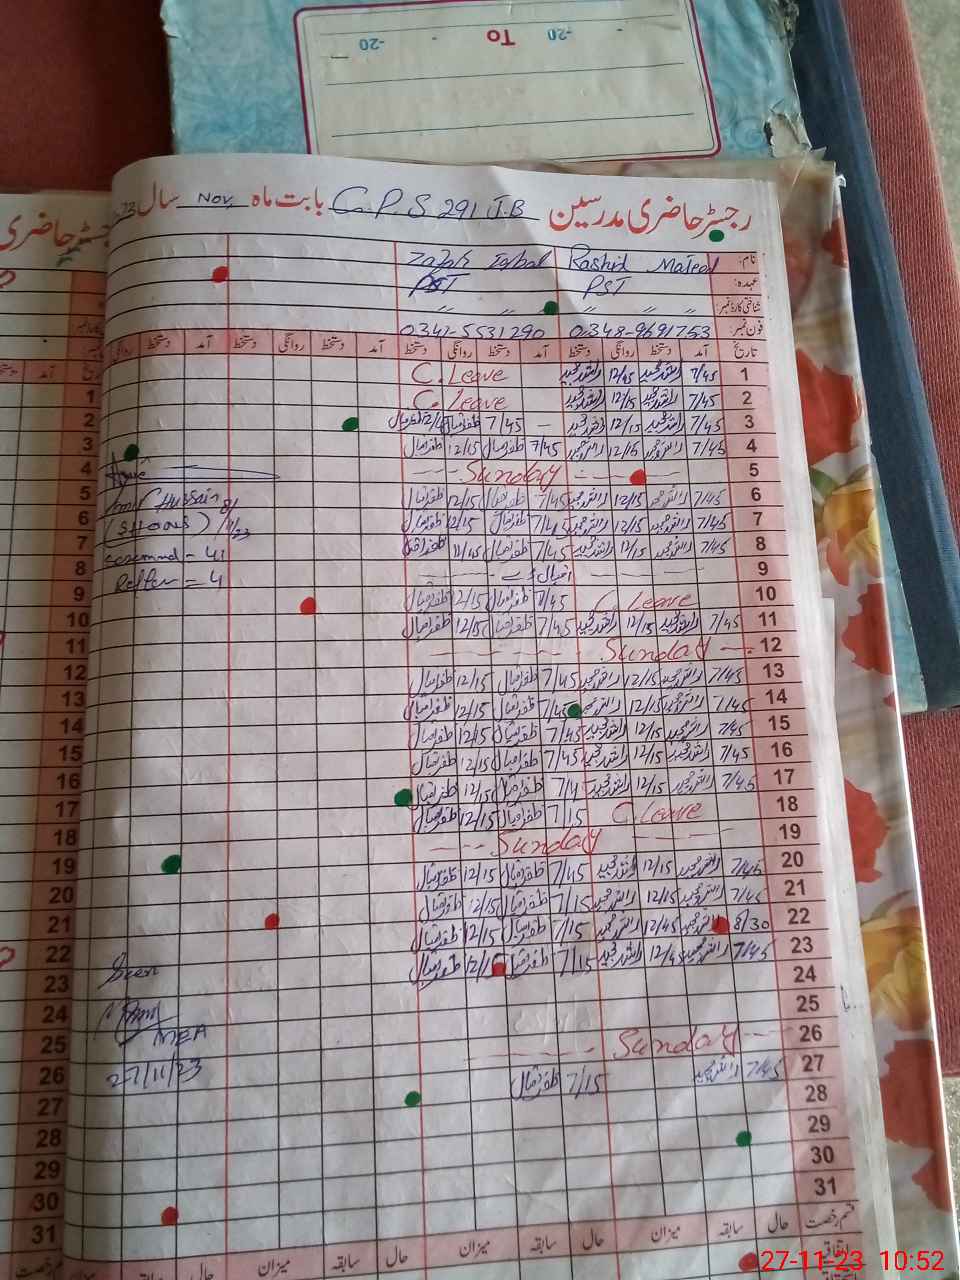 -20 -20 To
رجسٹر حاضری مدرسین G.P.S 291 J.B بابت ماہ Nov, سال 23
نام: Rashid Majeed Zafar Iqbal
عہدہ: PST PST
شناختی کارڈ نمبر:
فون نمبر: 0348-9691753 0341-5531290
تاریخ آمد دستخط روانگی دستخط آمد دستخط روانگی دستخط آمد دستخط روانگی دستخط آمد دستخط روانگی
1 7/45 راشد مجید 12/45 راشد مجید C. Leave
2 7/45 راشد مجید 12/15 راشد مجید C. Leave
3 7/45 راشد مجید 12/15 راشد مجید 7/45 ظفر اقبال ظفر اقبال
4 7/45 راشد مجید 12/15 راشد مجید 7/45 ظفر اقبال 12/15 ظفر اقبال
5 Sunday
6 7/45 راشد مجید 12/15 راشد مجید 7/45 ظفر اقبال 12/15 ظفر اقبال
7 7/45 راشد مجید 12/15 راشد مجید 7/45 ظفر اقبال 12/15 ظفر اقبال
8 7/45 راشد مجید 12/15 راشد مجید 7/45 ظفر اقبال 11/45 ظفر اقبال
9 اقبال ڈے
10 C Leave 7/45 ظفر اقبال 12/15 ظفر اقبال
11 7/45 راشد مجید 12/15 راشد مجید 7/45 ظفر اقبال 12/15 ظفر اقبال
12 Sunday
13 7/45 راشد مجید 12/15 راشد مجید 7/45 ظفر اقبال 12/15 ظفر اقبال
14 7/45 راشد مجید 12/15 راشد مجید 7/45 ظفر اقبال 12/15 ظفر اقبال
15 7/45 راشد مجید 12/15 راشد مجید 7/45 ظفر اقبال 12/15 ظفر اقبال
16 7/45 راشد مجید 12/15 راشد مجید 7/45 ظفر اقبال 12/15 ظفر اقبال
17 7/45 راشد مجید 12/15 راشد مجید 7/4 ظفر اقبال 12/15 ظفر اقبال
18 C. Leave 7/15 ظفر اقبال 12/15 ظفر اقبال
19 Sunday
20 7/45 راشد مجید 12/15 راشد مجید 7/45 ظفر اقبال 12/15 ظفر اقبال
21 7/45 راشد مجید 12/15 راشد مجید 7/15 ظفر اقبال 12/15 ظفر اقبال
22 8/30 راشد مجید 12/45 راشد مجید 7/15 ظفر اقبال 12/15 ظفر اقبال
23 7/45 راشد مجید 12/45 راشد مجید 7/15 ظفر اقبال 12/15 ظفر اقبال
24
25
26 Sunday
27 7/45 راشد مجید 7/15 ظفر اقبال
28
29
30
31
قسم رخصت حال سابقہ میزان حال سابقہ میزان حال سابقہ میزان حال سابقہ
اتفاقیہ
Hussain 8/11/23
= 41
= 4
Seen
MEA
27/11/23
جسٹر حاضری
1
2
3
4
5
6
7
8
9
10
11
12
13
14
15
16
17
18
19
20
21
22
23
24
25
26
27
28
29
30
31
27-11-23 10:52